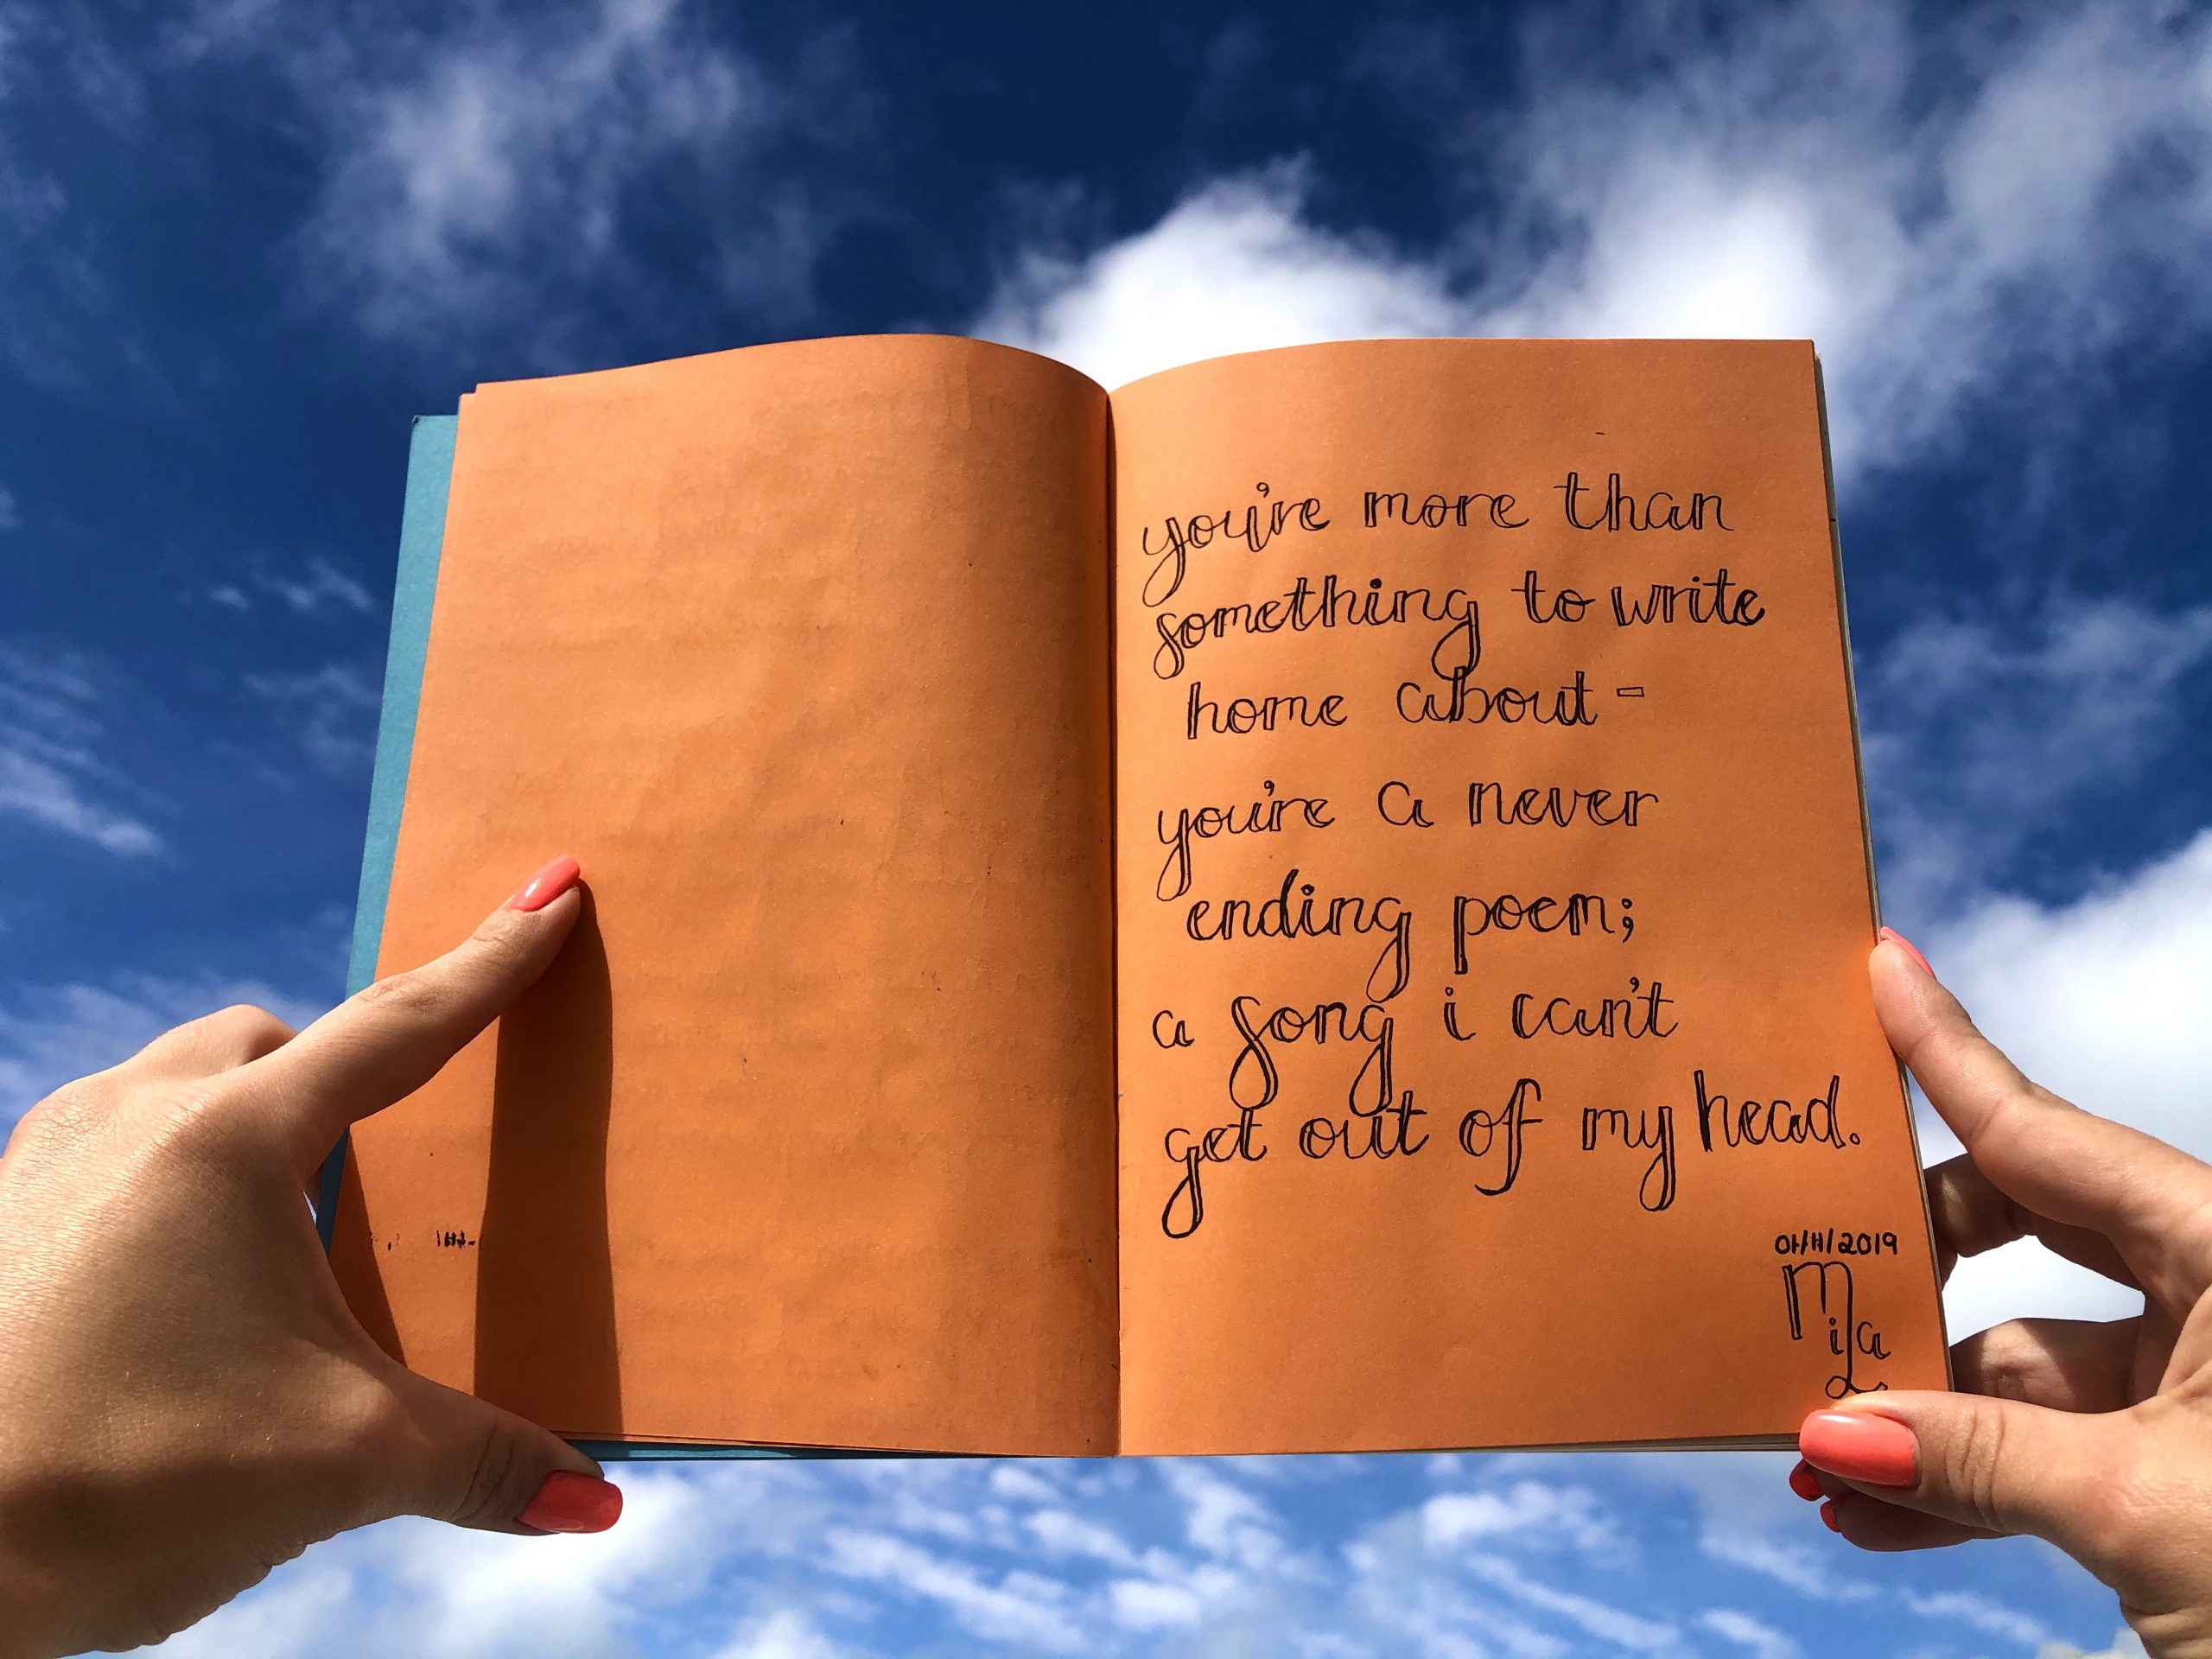 you're more than
something to write
home about -
you're a never
ending poem;
a song i can't
get out of my head.
2019
Mila